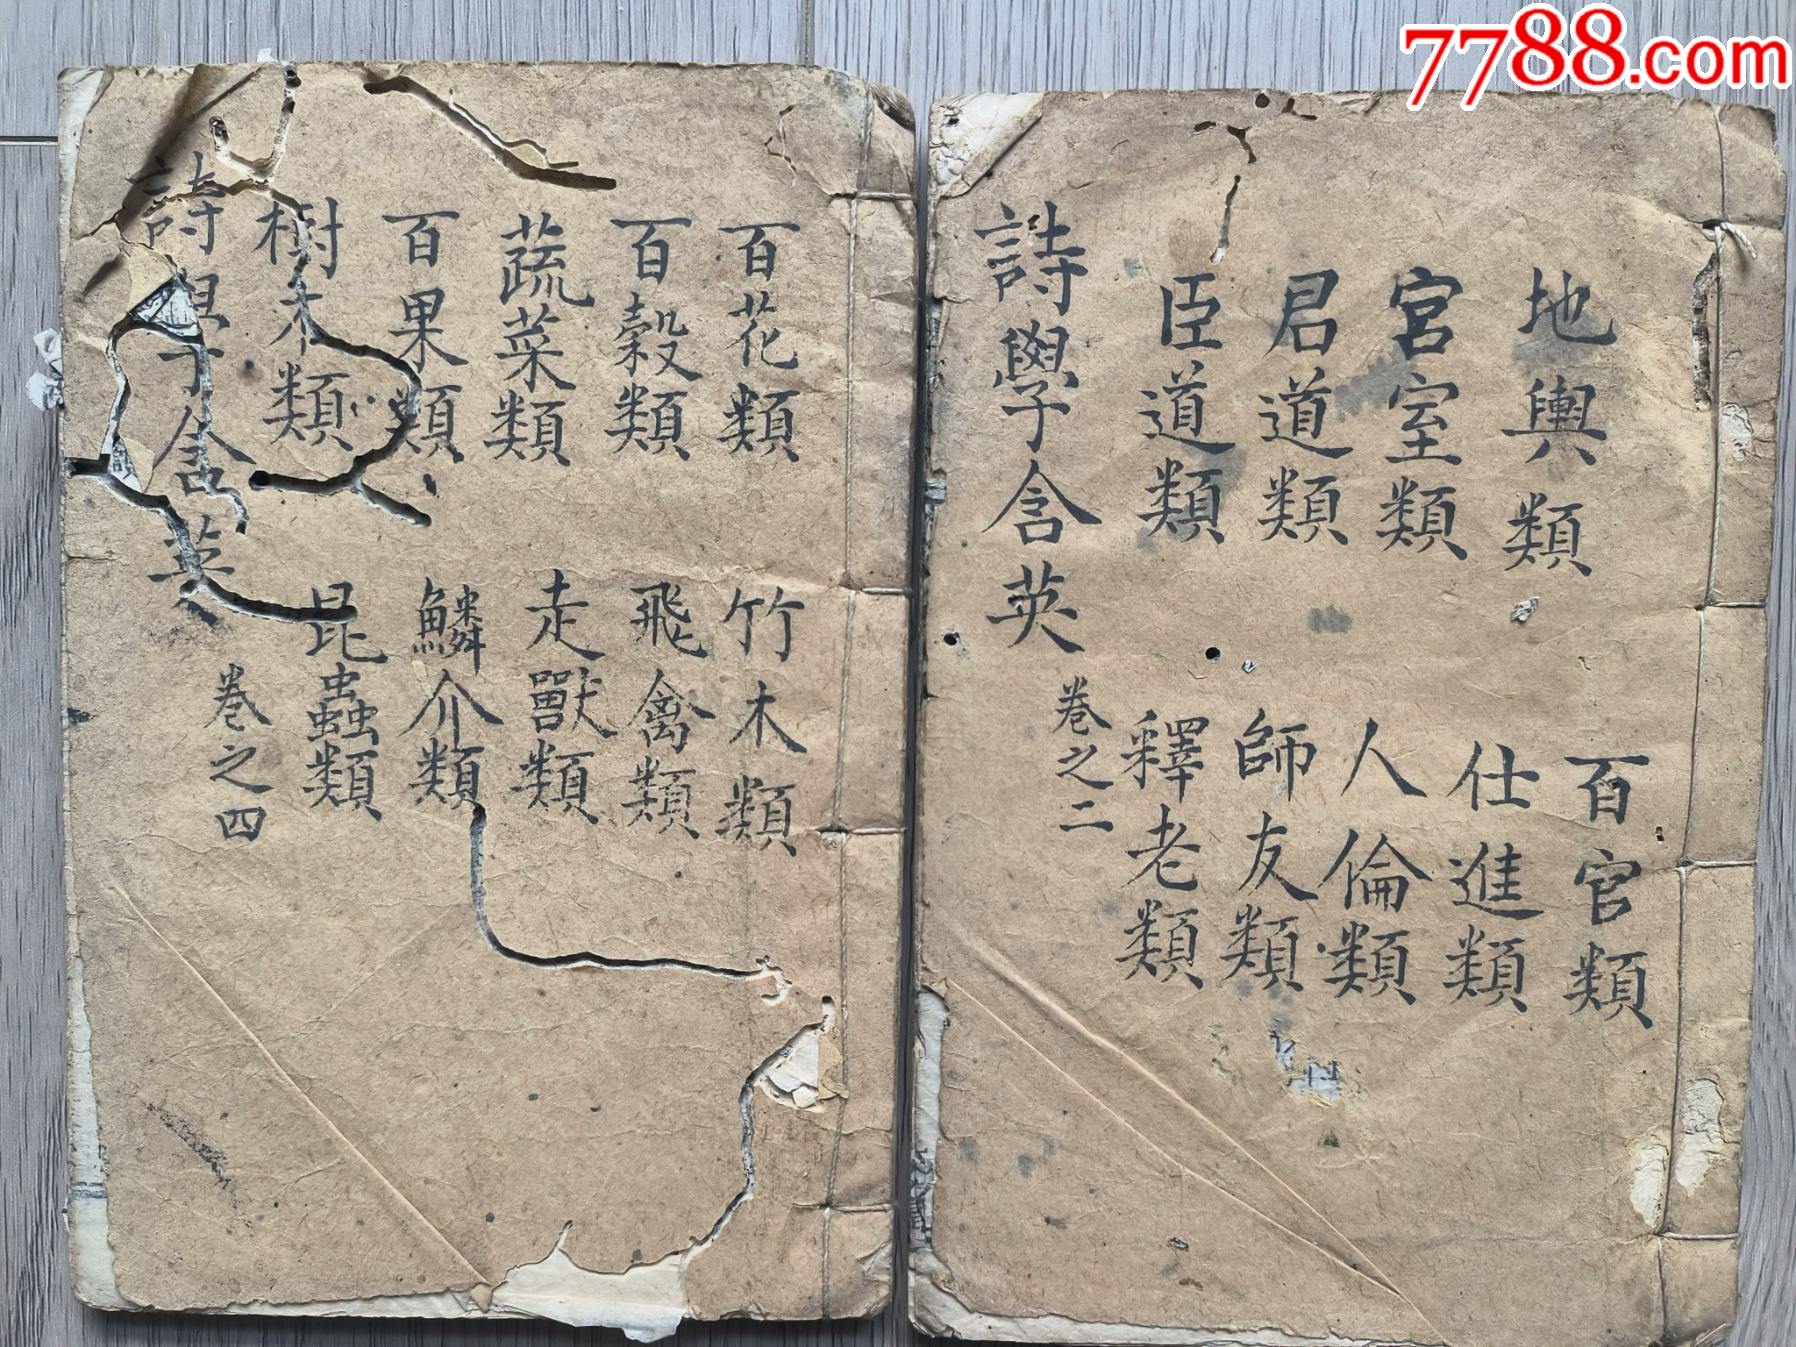 7788.com
地輿類
宮室類
君道類
臣道類
百官類
仕進類
人倫類
師友類
釋老類
詩學含英
卷之二
百花類
百穀類
蔬菜類
百果類
樹木類
竹木類
飛禽類
走獸類
鱗介類
昆蟲類
詩學含英
卷之四